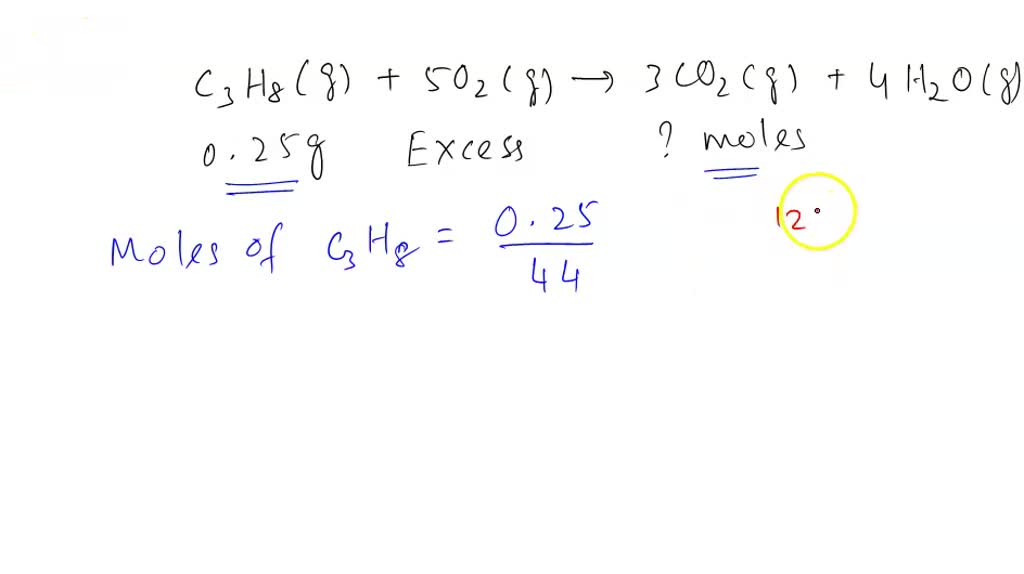 C₃H₈(g) + 5O₂(g) → 3CO₂(g) + 4H₂O(g)
0.25g Excess ? moles
Moles of C₃H₈ = 0.25/44
12.